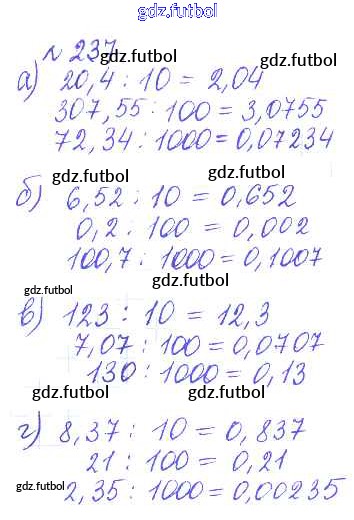 gdz.futbol
№ 237
gdz.futbol gdz.futbol
а) 20,4 : 10 = 2,04
307,55 : 100 = 3,0755
72,34 : 1000 = 0,07234
gdz.futbol gdz.futbol
б) 6,52 : 10 = 0,652
0,2 : 100 = 0,002
100,7 : 1000 = 0,1007
gdz.futbol gdz.futbol
в) 123 : 10 = 12,3
7,07 : 100 = 0,0707
130 : 1000 = 0,13
gdz.futbol gdz.futbol
г) 8,37 : 10 = 0,837
21 : 100 = 0,21
gdz.futbol gdz.futbol
2,35 : 1000 = 0,00235